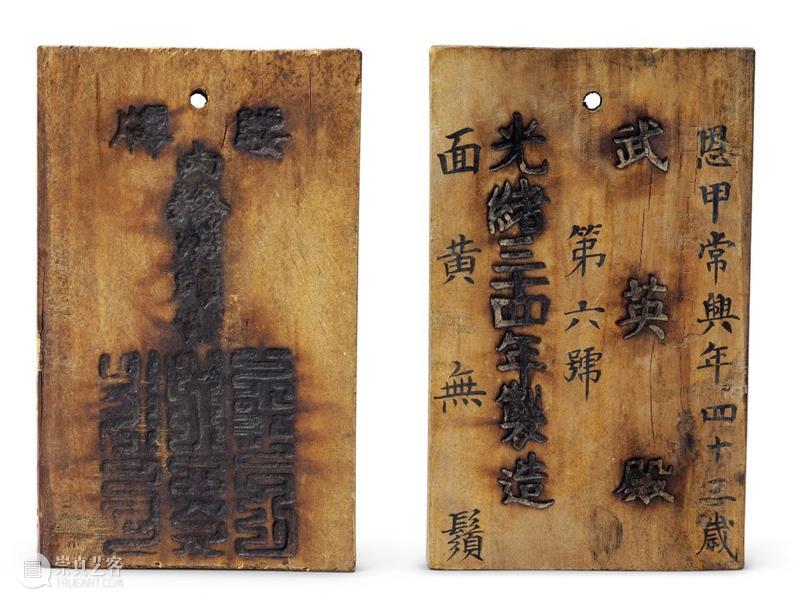 腰牌
內務府
恩甲常興年四十三歲
武英殿
第六號
光緒三十四年製造
面黃無鬚
崇真艺客
TRUEART.COM